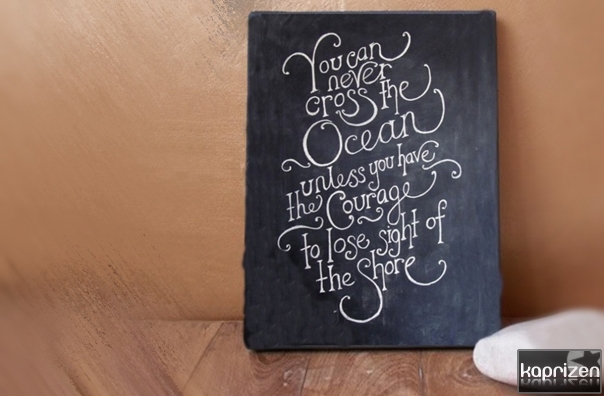 You can
never
cross the
Ocean
unless you have
the Courage
to lose sight of
the Shore
kaprizen